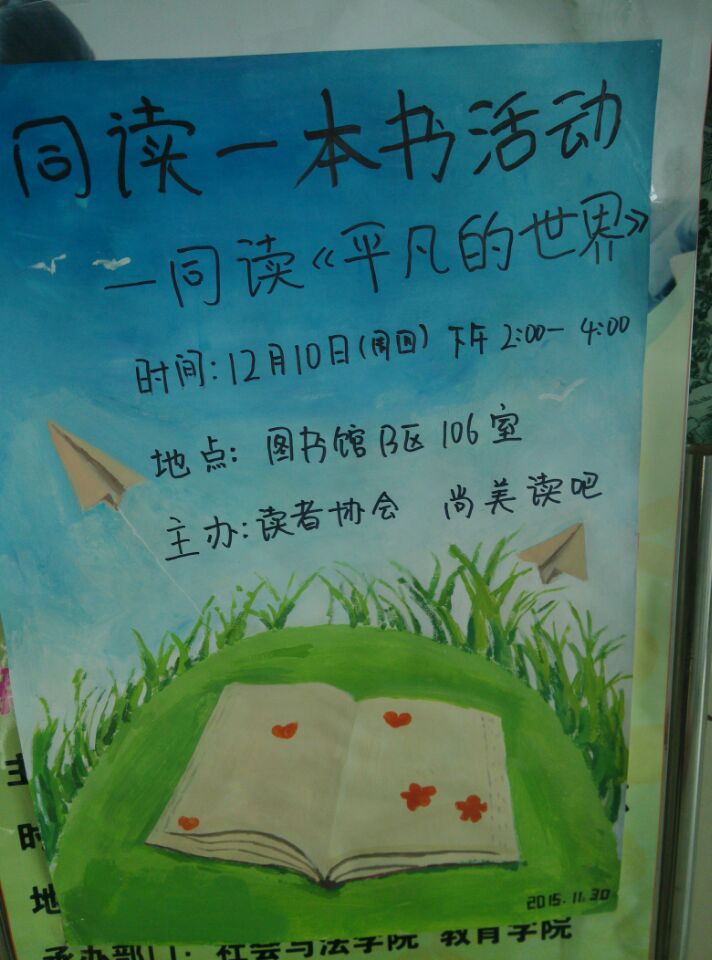 同读一本书活动
—同读《平凡的世界》
时间:12月10日(周四) 下午 2:00—4:00
地点: 图书馆B区 106室
主办:读者协会 尚美读吧
2015.11.30
主
时
地
承办部门: 社会与法学院 教育学院